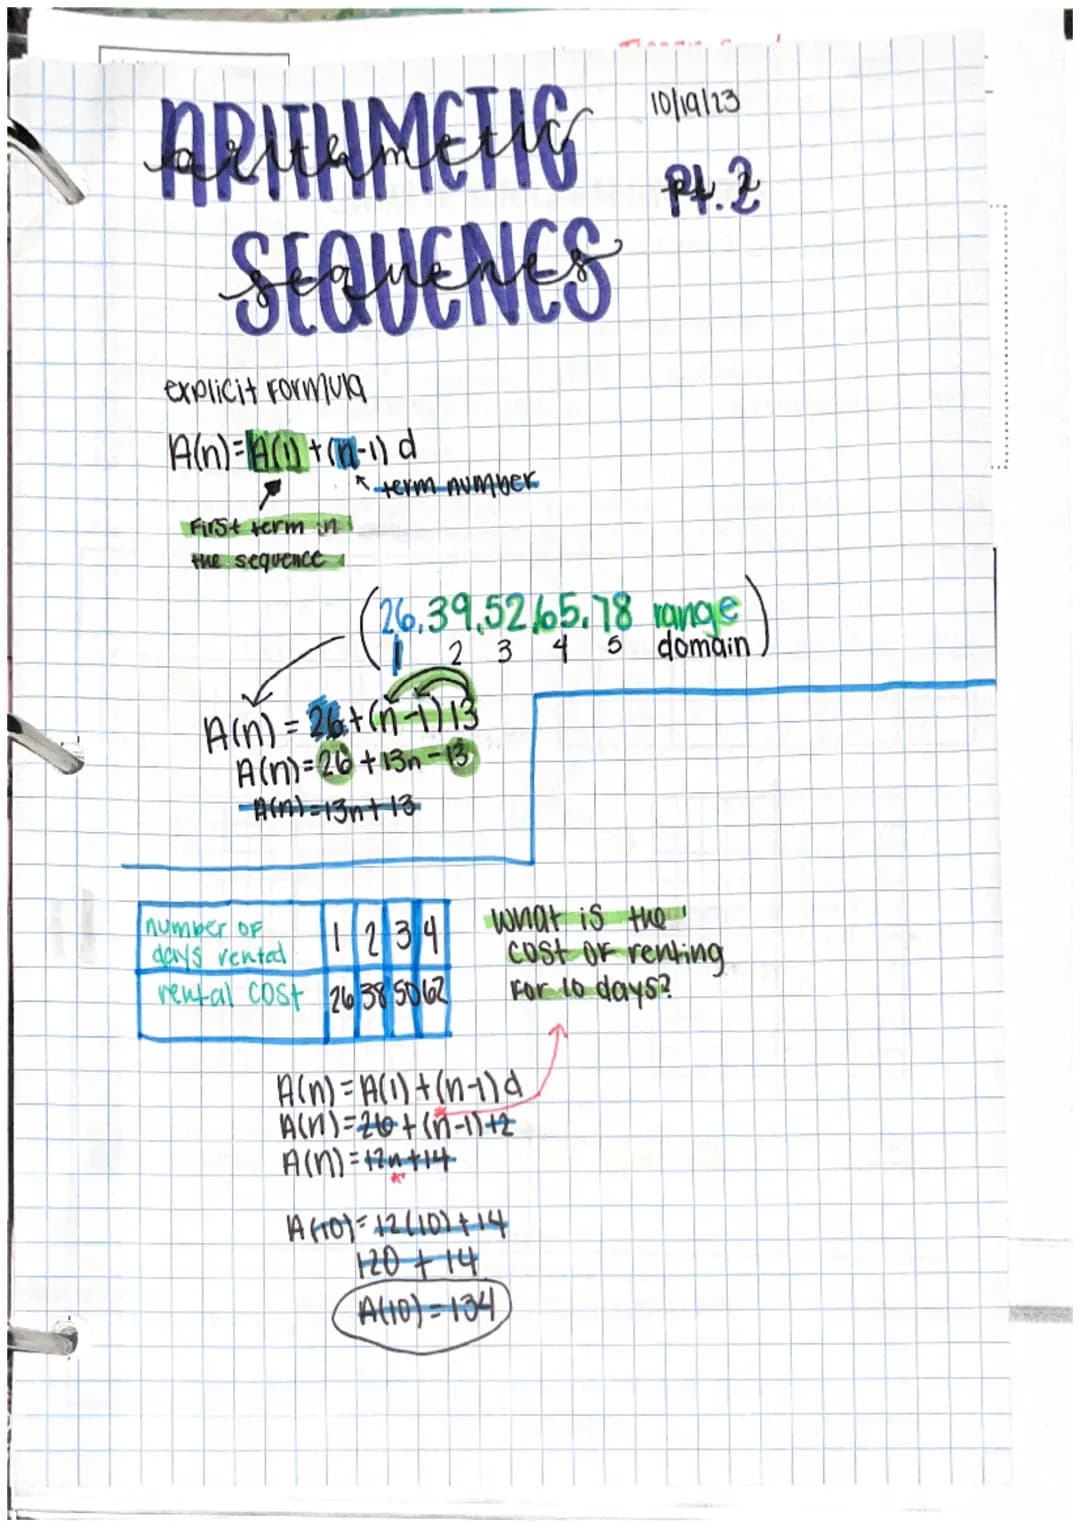 ARITHMETIC
arithmetic
10/19/23
Pt. 2
SEQUENCES
sequences
explicit formula
A(n)=A(1)+(n-1) d
term number
First term in
the sequence
(26,39,52,65,78 range)
1 2 3 4 5 domain
A(n) = 26+(n-1)13
A(n)=26+13n-13
A(n)=13n+13
number of days rented 1 2 3 4
rental cost 26 38 50 62
What is the
cost of renting
for 10 days?
A(n)=A(1)+(n-1)d
A(n)=26+(n-1)12
A(n)=12n+14
A(10)=12(10)+14
120+14
A(10)=134